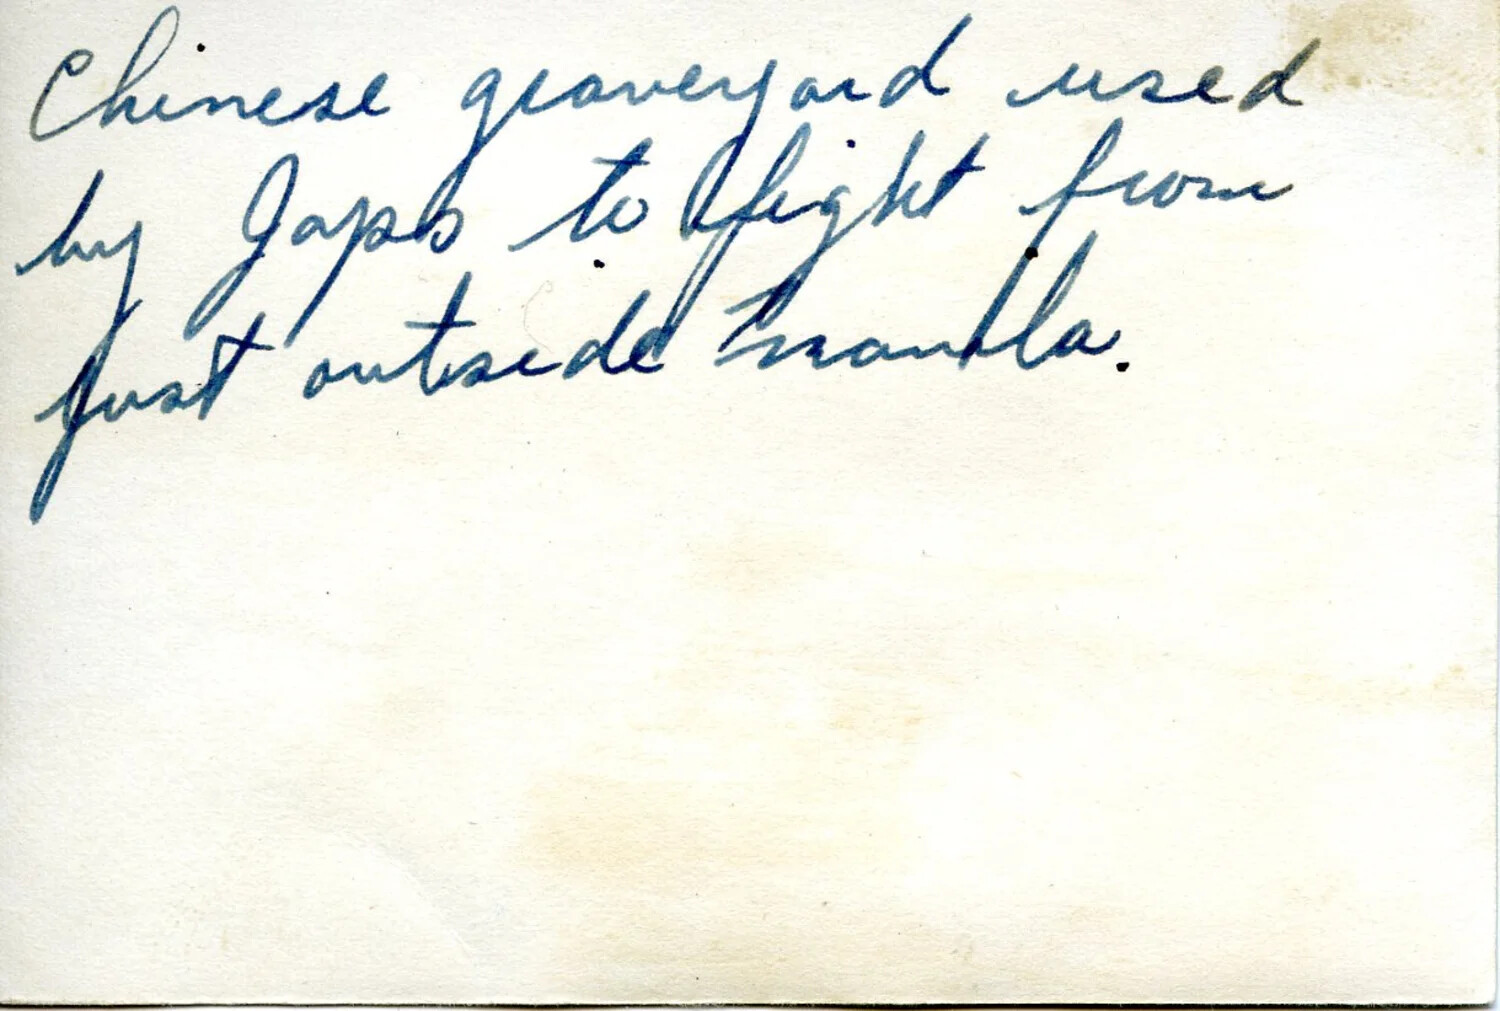 Chinese graveyard used
by Japs to fight from
just outside Manila.